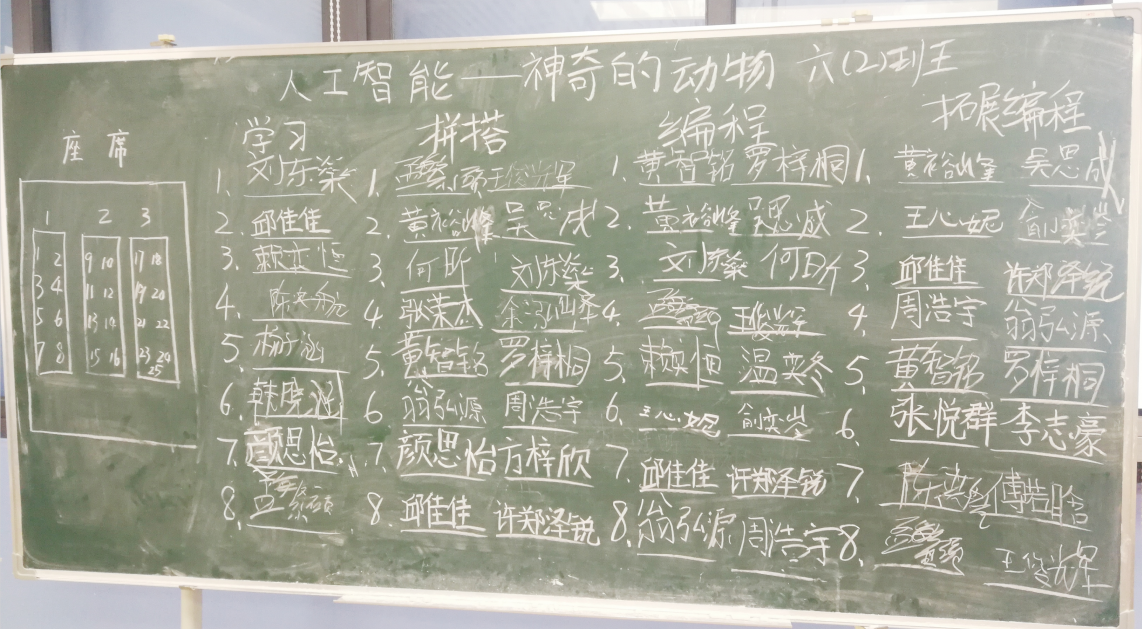 人工智能——神奇的动物 六(2)班
座席
1 2 3
1 2 9 10 17 18
3 4 11 12 19 20
5 6 13 14 21 22
7 8 15 16 23 24
25
学习
1、刘东燊
2、邱佳佳
3、赖奕恒
4、
5、杨子涵
6、韩
7、颜思怡
8、
拼搭
1、
2、黄裕烽 吴思成
3、何昕 刘东燊
4、张荣杰 余泓
5、黄智铭 罗梓桐
6、翁弘源 周浩宇
7、颜思怡 方梓欣
8、邱佳佳 许郑泽锐
编程
1、黄智铭 罗梓桐
2、黄裕烽 吴思成
3、刘东燊 何昕
4、
5、赖奕恒 温奕冬
6、王心妮 俞奕岑
7、邱佳佳 许郑泽锐
8、翁弘源 周浩宇
拓展编程
1、黄裕烽 吴思成
2、王心妮 俞奕岑
3、邱佳佳 许郑泽锐
4、周浩宇 翁弘源
5、黄智铭 罗梓桐
6、张悦群 李志豪
7、陈 傅皓晗
8、王俊辉